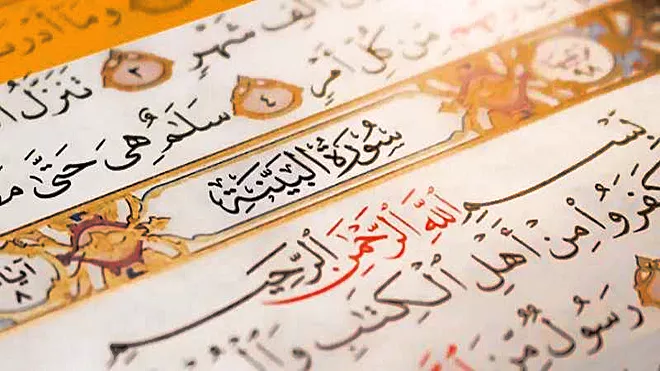 وَمَا أَدْرَ
أَلْفِ شَهْرٍ ٣ تَنَزَّلُ
مِّن كُلِّ أَمْرٍ ٤ سَلَٰمٌ هِىَ حَتَّىٰ مَ
سُورَةُ الْبَيِّنَةِ
آيَا
٨
بِسْمِ اللَّهِ الرَّحْمَٰنِ الرَّحِيمِ
كَفَرُوا۟ مِنْ أَهْلِ ٱلْكِتَٰبِ وَٱلْ
رَسُولٌ مِّنَ